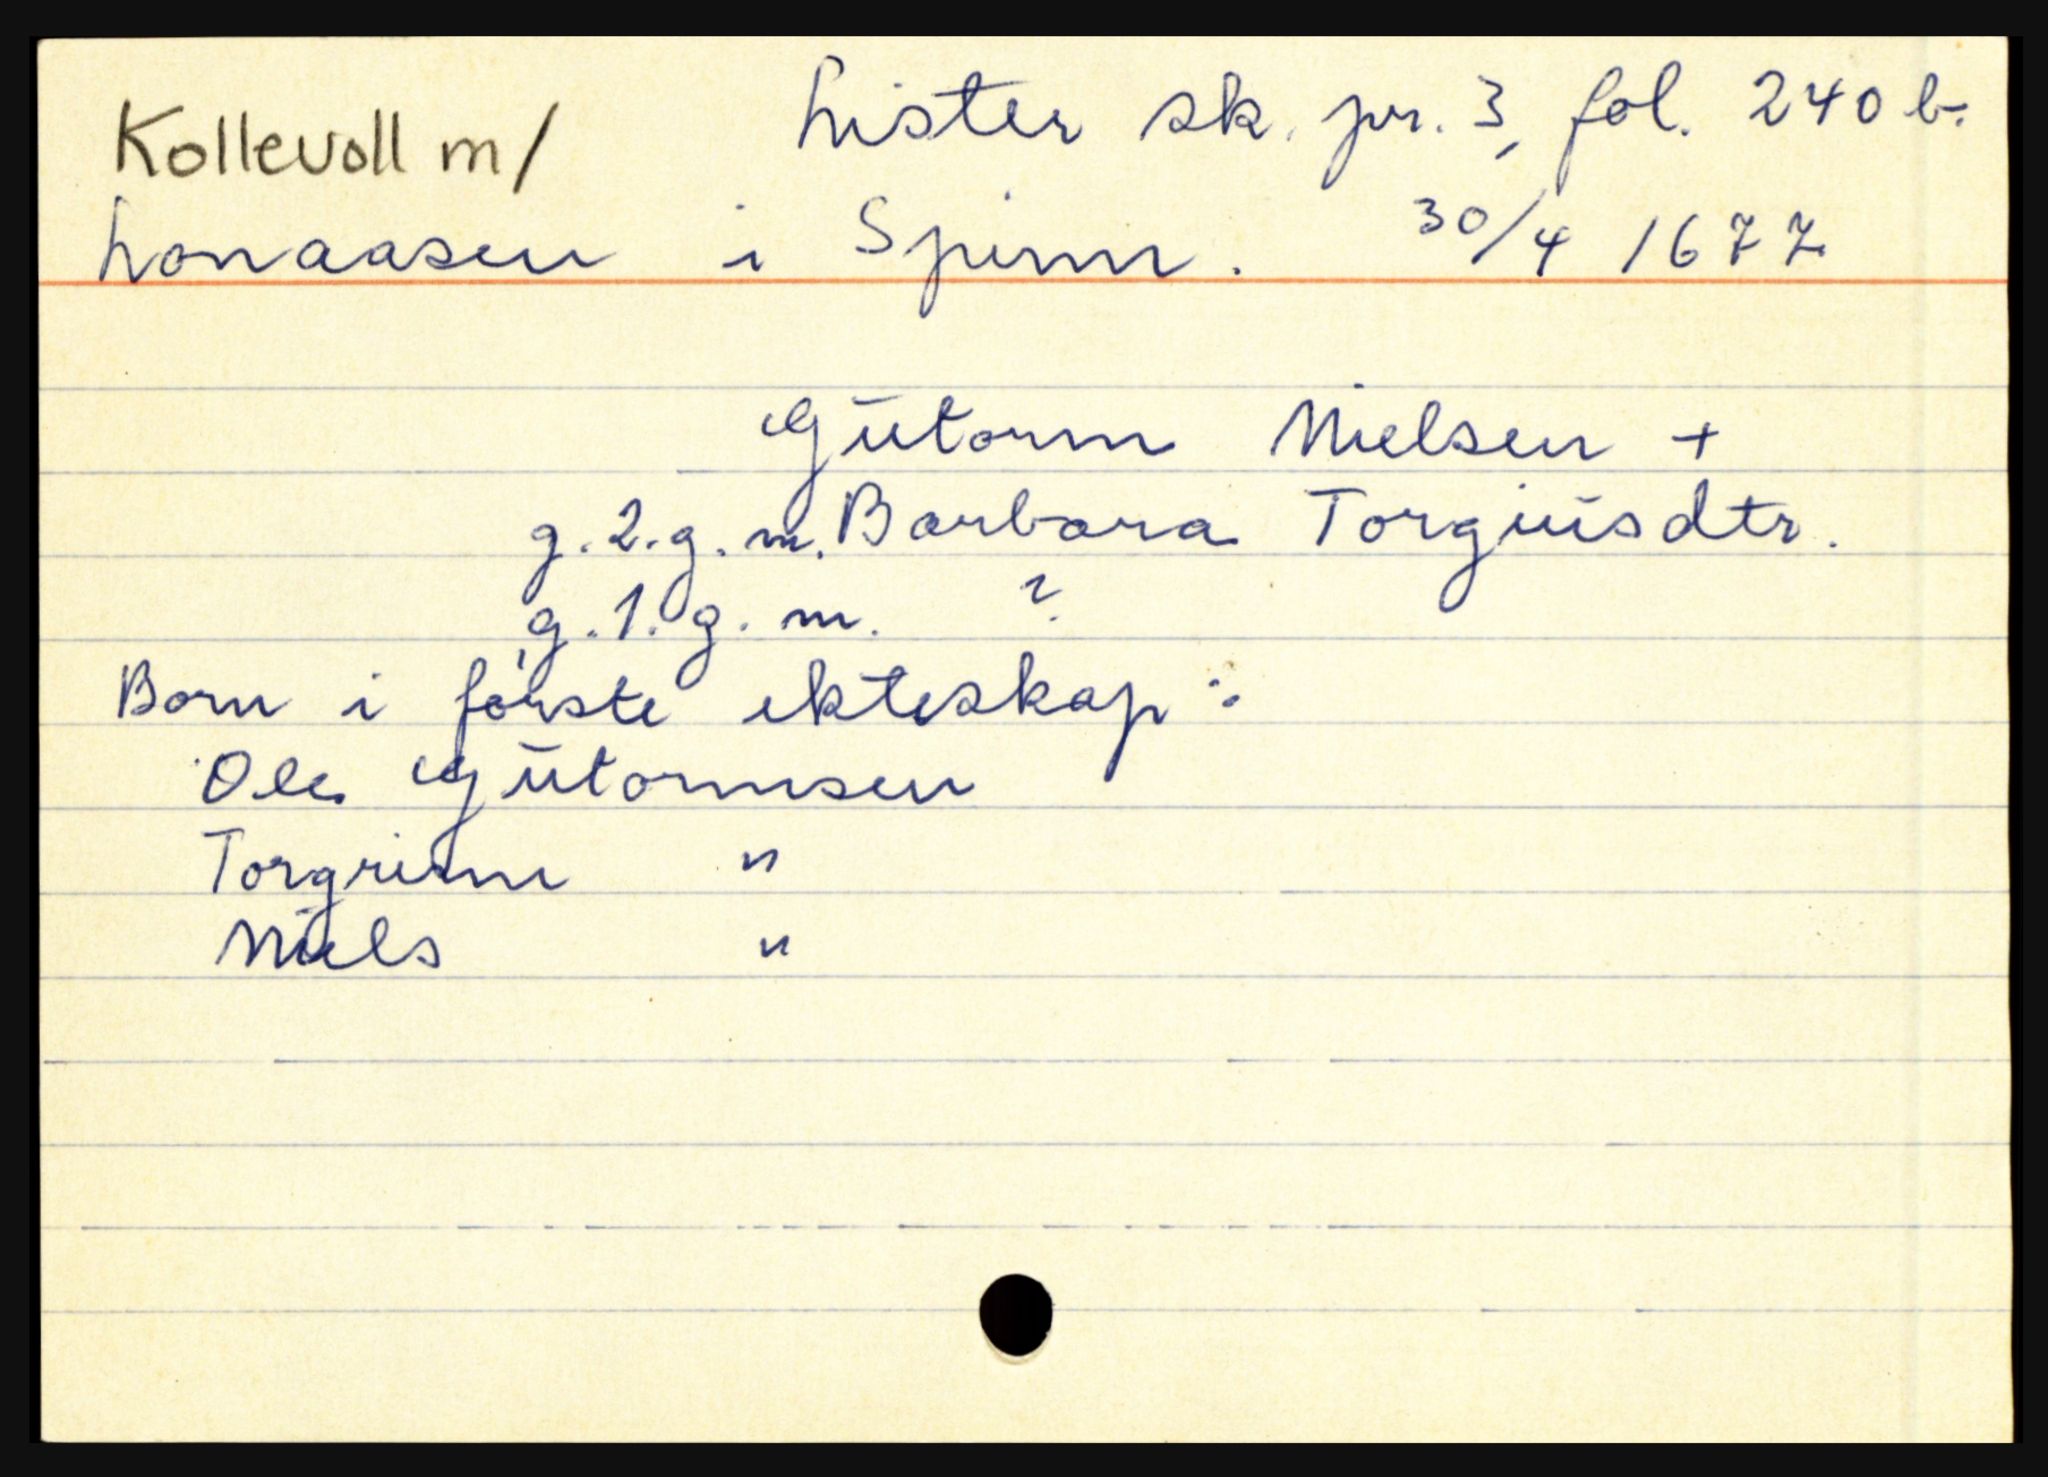 Kollevoll m/ Lister sk. pr. 3, fol. 240 b.
Lonaasen i Spinn. 30/4 1677
Gütorm Nielsen +
g. 2. g. m. Barbara Torgiüsdtr.
g. 1. g. m. ?
Born i fórste ekteskap :
Ole Gütormsen
Torgrim "
Niels "